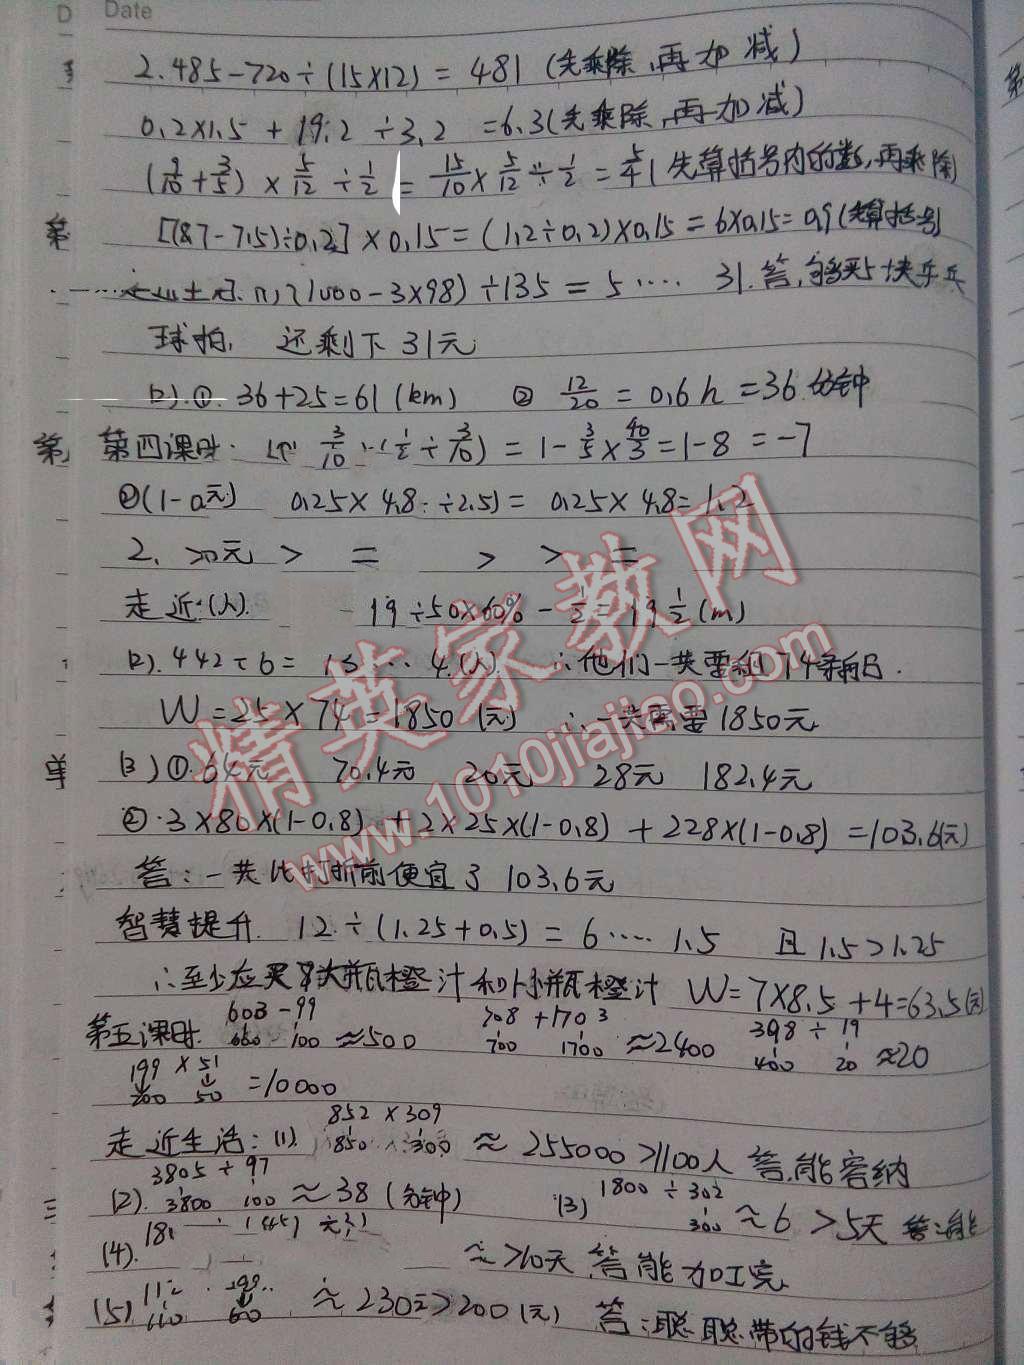 D Date
2. 485-720÷(15×12) = 481 (先乘除,再加减)
0.2×1.5 + 19.2 ÷3.2 =6.3(先乘除,再加减)
(9/10+3/5) × 5/12 ÷ 1/2 = 15/10 × 5/12 ÷ 1/2 = 5/4 (先算括号内的数,再乘除)
[(8.7-7.5)÷0.2] × 0.15 = (1.2÷0.2)×0.15 = 6×0.15= 0.9 (先算括号)
(1000-3×98) ÷135 = 5 ···· 31. 答,够买5块乒乓
球拍, 还剩下31元
(2).①. 36+25=61(km) ② 12/20 = 0.6h =36分钟
第四课时. 3/10 (1/2 ÷ 3/10) = 1- 3/5 × 40/3 =1-8 =-7
②(1-a元) 0.25× 4.8 ÷2.5) = 0.25× 4.8= 1.2
2. > = > > =
走近:(人). 19÷50×60% - 1/2 = 19 1/2 (m)
(2). 442÷6= ·· 4(人) ∴他们一共要租74条船.
W=25×74=1850(元) ∴一共需要1850元
(3)①.64元 70.4元 20元 28元 182.4元
②.3×80×(1-0.8) + 2×25×(1-0.8) + 228×(1-0.8) =103.6(元)
答:一共比打折前便宜了103.6元
智慧提升. 12÷(1.25+0.5) = 6 ···· 1.5 且1.5>1.25
∴至少应买 大瓶橙汁和 小瓶橙汁 W=7×8.5+4=63.5(元)
第五课时. 603-99 600 100 ≈500 708+1703 700 1700 ≈2400 398÷19 400 20 ≈20
199×51 200 50 =10000
走近生活:(1). 852×309 850 300 ≈ 255000>1100人 答,能容纳
(2). 3805÷97 3800 100 ≈38(分钟) (3) 1800÷302 300 ≈6 >5天 答:能
(4). ≈>10天 答能加工完
(5) 112 110 199 ≈230元>200(元) 答:聪聪带的钱不够
精英家教网
www.1010jiajiao.com